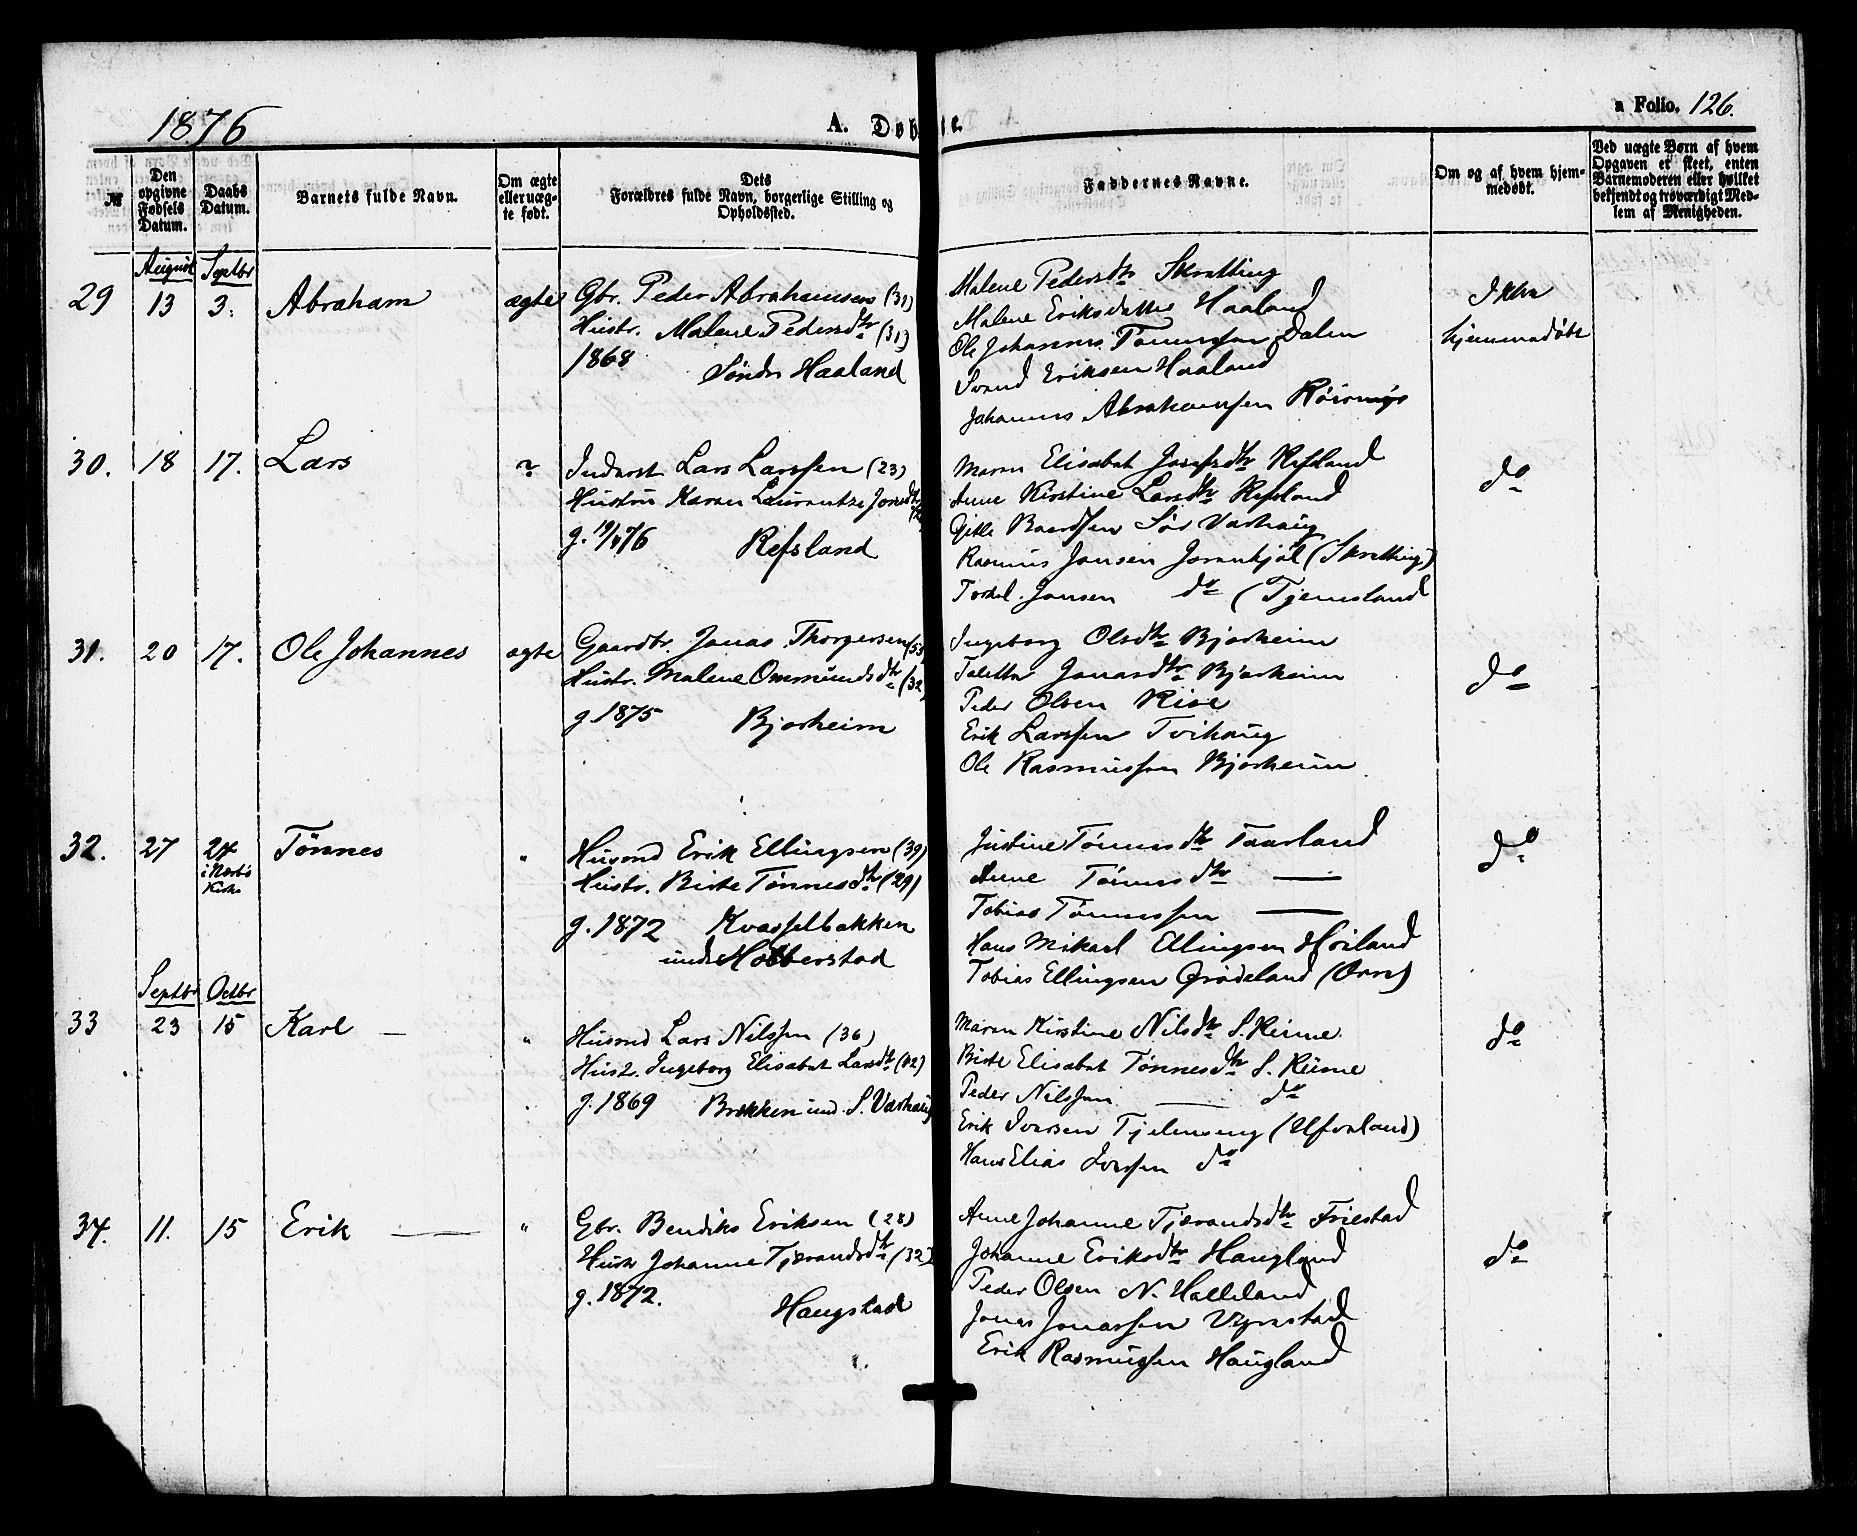 1876
A. Døbte.
a Folio. 126.
№
Den opgivne Fødsels Datum.
Daabs Datum.
Barnets fulde Navn.
Om ægte eller uægte født.
Dets Forældres fulde Navn, borgerlige Stilling og Opholdssted.
Faddernes Navne.
Om og af hvem hjemmedøbt.
Ved uægte Børn af hvem Opgaven er skeet, enten Barnemoderen eller hvilket bekjendt og troværdigt Medlem af Menigheden.
August Septbr
29 13 3. Abraham ægte
Gbr. Peder Abrahamsen (31)
Hustr. Malene Pedersdtr (31)
1868 Søndr Haaland
Malene Pedersdtr Skretting
Malene Eriksdatter Haaland
Ole Johannes Tønnessen Dalen
Svend Eriksen Haaland
Johannes Abrahamsen
Ikke
hjemmedøbt
30. 18 17. Lars
Inderst Lars Larssen (23)
Hustru Karen Laurentze
g. 19/4 76 Refsland
Maren Elisabet Josefsdtr Refsland
Anne Kirstine Larsdtr Refsland
Gitle Baardsen Sør Varhaug
Rasmus Jansen (Skretting)
Torkel Jansen do (Tjemsland
do
31. 20 17. Ole Johannes ægte
Gaardbr. Jonas Thorgersen (53)
Hustr. Malene Ommundsdtr (32)
g 1875 Bjorheim
Ingeborg Olsdtr Bjorheim
Taletta Jonasdtr Bjorheim
Peder Olsen
Erik Larssen Tvihaug
Ole Rasmussen Bjorheim
do
32. 27 24 i Nærbø Kirke Tønnes "
Husmd Erik Ellingsen (39)
Hustr. Birte Tønnesdtr (29)
g. 1872 Kvasselbakken
und. Hobberstad
Justine Tønnesdtr Taarland
Anne Tønnesdtr —
Tobias Tønnessen —
Hans Mikael Ellingsen Høiland
Tobias Ellingsen Grødeland (Orre)
do
Septbr Octbr
33 23 15 Karl — "
Husmd Lars Nilssen (36)
Hustr. Ingeborg Elisabet Larsdtr (42)
g. 1869 Brekken und. S. Varhaug
Maren Kirstine Nilsdtr S. Reime.
Birte Elisabet Tønnesdtr S. Reime
Peder Nilssen — do
Erik Ivarsen Tjelmeng (Ulvaland)
Hans Elias Iversen do
do
34. 11. 15 Erik — "
Gbr. Bendiks Eriksen (28)
Hustr Johanne Tjerandsdtr (32)
g. 1872. Haugstad
Anne Johanne Tjerandsdtr Friestad
Johanne Eriksdtr Haugland
Peder Olsen N. Halleland
Jonas Jonassen Vigrestad
Erik Rasmussen Haugland
do